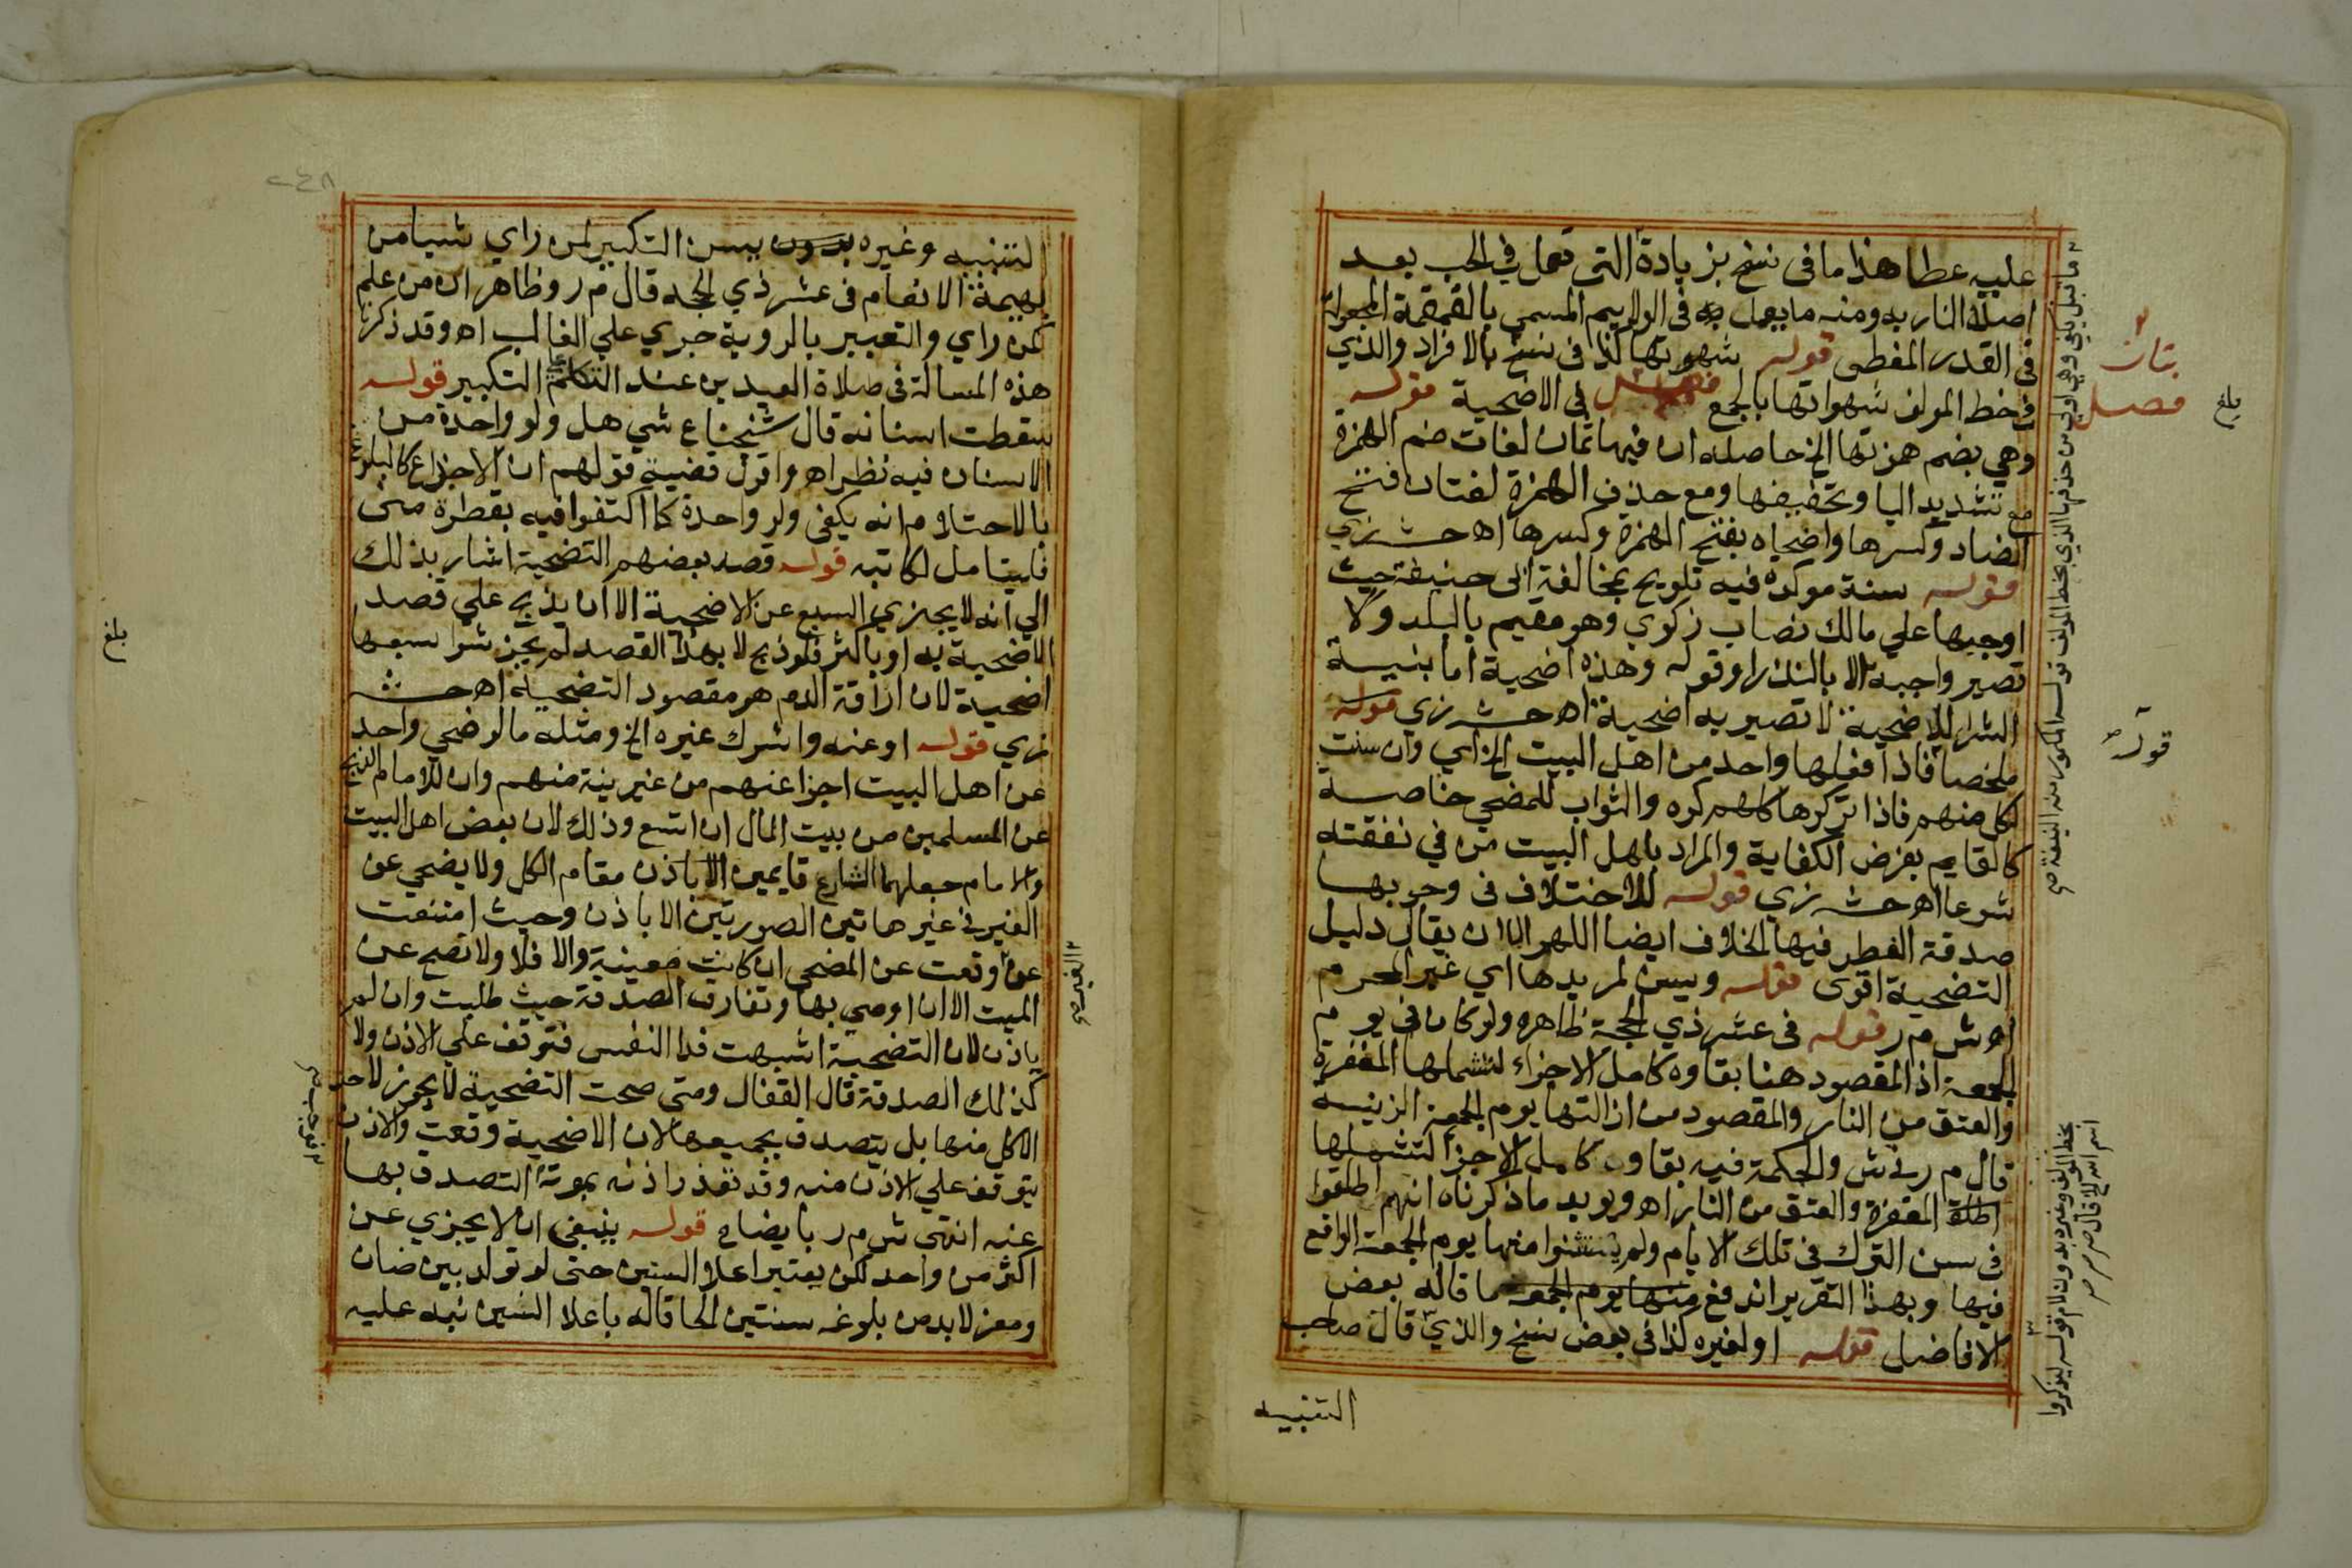 عليه عطا هذا ما في نسخ بزيادة التي تعمل في الحب بعد
اصلا النار به ومنه ما يعمل به في الولايم المسمي بالقمقمة المجعولة
في القدر المغطي قوله شهوتها كذا في نسخ بالافراد والذي
في خط المولف شهواتها بالجمع فصل في الاضحية قوله
وهي بضم همزتها الخ حاصله ان فيها ثمان لغات ضم الهمزة
مع تشديد اليا وتخفيفها ومع حذف الهمزة لغتان فتح
الضاد وكسرها واضحاه بفتح الهمزة وكسرها اه ح ش زي
قوله سنة موكدة فيه تلويح بمخالفة ابي حنيفة حيث
اوجبها علي مالك نصاب زكوي وهو مقيم بالبلد ولا
تصير واجبه الا بالنذر او قوله وهذه اضحية اما بنية
الشرا للاضحية لا تصير به اضحية اه ح ش زي قوله
ملخصا فاذا فعلها واحد من اهل البيت الخ اي وان سنت
لكل منهم فاذا تركرها كلهم كره والثواب للمضحي خاصة
كالقايم بفرض الكفاية والمراد باهل البيت من في نفقته
شرعا اه ح ش زي قوله للاختلاف في وجوبها
صدقة الفطر فيها الخلاف ايضا اللهم الا ان يقال دليل
التضحية اقوى قوله ويسن لمريدها اي غير المحرم
اه ش م ر قوله في عشر ذي الحجة ظاهره ولو كان في يوم
الجمعة اذ المقصود هنا بقاوه كامل الاجزاء لتشملها المغفرة
والعتق من النار والمقصود من ازالتها يوم الجمعة الزينه
قال م ر في ش والحكمة فيه بقاوه كامل الاجزا لتشملها
المغفرة والعتق من النار اه ويويد ما ذكرناه انهم اطلقوا
في سن الترك في تلك الايام ولم يستثنوا منها يوم الجمعة الواقع
فيها وبهذا التقرير اندفع منها يوم الجمعه ما قاله بعض
الافاضل قوله او لغيره كذا في بعض نسخ والذي قال صاحب
التنبيه
بتان
فصل
بلغ
قوله
التنبيه وغيره بدون يسن التكبير لمن راي شيا من
بهيمة الانعام في عشر ذي الحجه قال م ر وظاهر ان من علم
كمن راي والتعبير بالروية جري علي الغالب اه وقد ذكرنا
هذه المسالة في صلاة العيدين عند التكلم التكبير قوله
سقطت اسنانه قال شيخنا ع ش هل ولو واحدة من
الاسنان فيه نظر اه واقول قضية قولهم ان الاجذاع كالبلوغ
بالاحتلام انه يكفي ولو واحدة كما اكتفوا فيه بقطرة مني
فليتامل لكاتبه قوله قصد بعضهم التضحية اشار بذلك
الي انه لا يجزي السبع عن الاضحية الا ان يذبح علي قصد
الاضحية به او باكثر فلو ذبح لا بهذا القصد لم يجز شرا سبعها
اضحية لان اراقة الدم هو مقصود التضحية اه ح ش
زي قوله او عنه واشرك غيره الخ ومثله ما لو ضحي واحد
عن اهل البيت اجزا عنهم من غير نية منهم وان للامام الذبح
عن المسلمين من بيت المال ان اتسع وذلك لان بعض اهل البيت
والامام جعلهما الشارع قايمين مقام الكل ولا يضحي عن
الغير في غير هاتين الصورتين الا باذن وحيث امتنعت
عن وقعت عن المضحي ان كانت معينية والا فلا ولا تصح عن
الميت الا ان اوصي بها وتفارق الصدقة حيث طلبت وان لم
ياذن لان التضحية اشبهت فدا النفس فتوقف علي الاذن ولا
كذلك الصدقة قال القفال ومتي صحت التضحية لا يجوز لاحد
الاكل منها بل يتصدق بجميعها لان الاضحية وقعت والاذن
يتوقف علي الاذن منه وقد تعذر اذنه بموته التصدق بها
عنه انتهي ش م ر بايضاح قوله ينبغي ان لا يجزي عن
اكثر من واحد لكن يعتبر اعلا السنين حتي لو تولد بين ضان
ومعز لابد من بلوغه سنتين الحاقا له باعلا السنين نبه عليه
بلغ